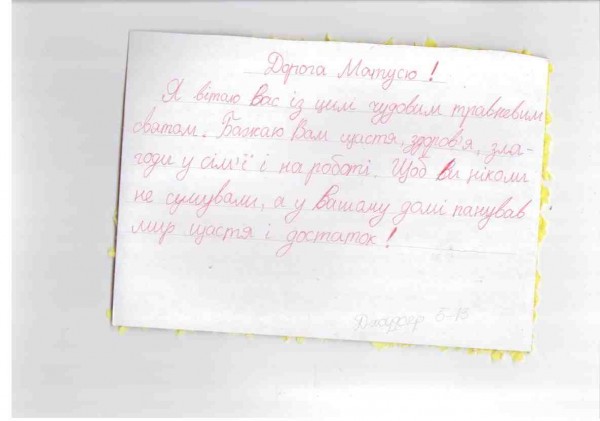 Дорога Матусю!
Я вітаю Вас із цим чудовим травневим
святом. Бажаю Вам щастя, здоров'я, зла-
годи у сім'ї і на роботі. Щоб Ви ніколи
не сумували, а у Вашому домі панував
мир щастя і достаток!
5-В